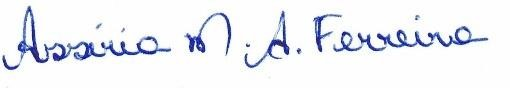 Assíria M. A. Ferreira